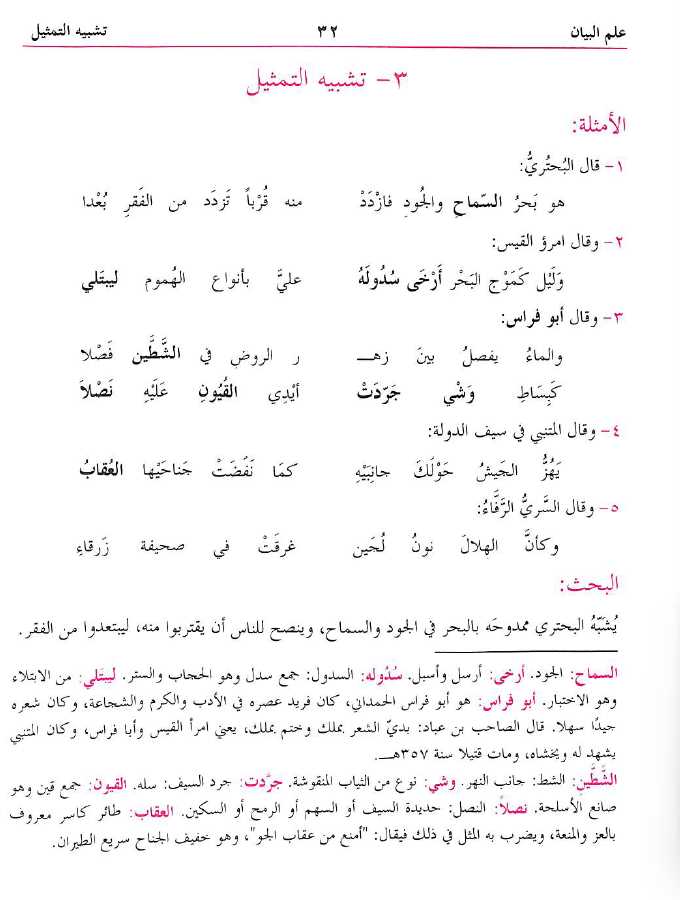 علم البيان ٣٢ تشبيه التمثيل
٣- تشبيه التمثيل
الأمثلة:
١- قال البُحتُريُّ:
هو بَحرُ السّماحِ والجُودِ فازْدَدْ منه قُرْباً تَزدَد من الفَقرِ بُعْدا
٢- وقال امرؤ القيس:
وَلَيْل كَمَوْج البَحْر أَرْخَى سُدُولَهُ عليَّ بأنواع الهُموم ليبتَلي
٣- وقال أبو فراس:
والماءُ يفصلُ بينَ زهــ ر الروضِ في الشَّطَّين فَصْلا
كَبِسَاطِ وَشْي جَرّدَتْ أيْدِي القُيُونِ عَلَيْهِ نَصْلاَ
٤- وقال المتنبي في سيف الدولة:
يَهُزُّ الجَيشُ حَوْلَكَ جانِبَيْهِ كمَا نَفَضَتْ جَناحَيْها العُقابُ
٥- وقال السَريُّ الرَّفَّاءُ:
وكأنَّ الهلالَ نونُ لُجَين غرقَتْ في صحيفة زَرقاءِ
البحث:
يُشبّهُ البحتري ممدوحَه بالبحر في الجود والسماح، وينصح للناس أن يقتربوا منه، ليبتعدوا من الفقر.
السماح: الجود. أرخى: أرسل وأسبل. سُدُوله: السدول: جمع سدل وهو الحجاب والستر. ليبتَلي: من الابتلاء
وهو الاختبار. أبو فراس: هو أبو فراس الحمداني، كان فريد عصره في الأدب والكرم والشجاعة، وكان شعره
جيدًا سهلا. قال الصاحب بن عباد: بديّ الشعر بملك وختم بملك، يعني امرأ القيس وأبا فراس، وكان المتنبي
يشهد له ويخشاه، ومات قتيلا سنة ٣٥٧هــ.
الشَّطَّينِ: الشط: جانب النهر. وشي: نوع من الثياب المنقوشة. جرَّدت: جرد السيف: سله. القيون: جمع قين وهو
صانع الأسلحة. نصلاً: النصل: حديدة السيف أو السهم أو الرمح أو السكين. العقاب: طائر كاسر معروف
بالعز والمنعة، ويضرب به المثل في ذلك فيقال: "أمنع من عقاب الجو"، وهو خفيف الجناح سريع الطيران.